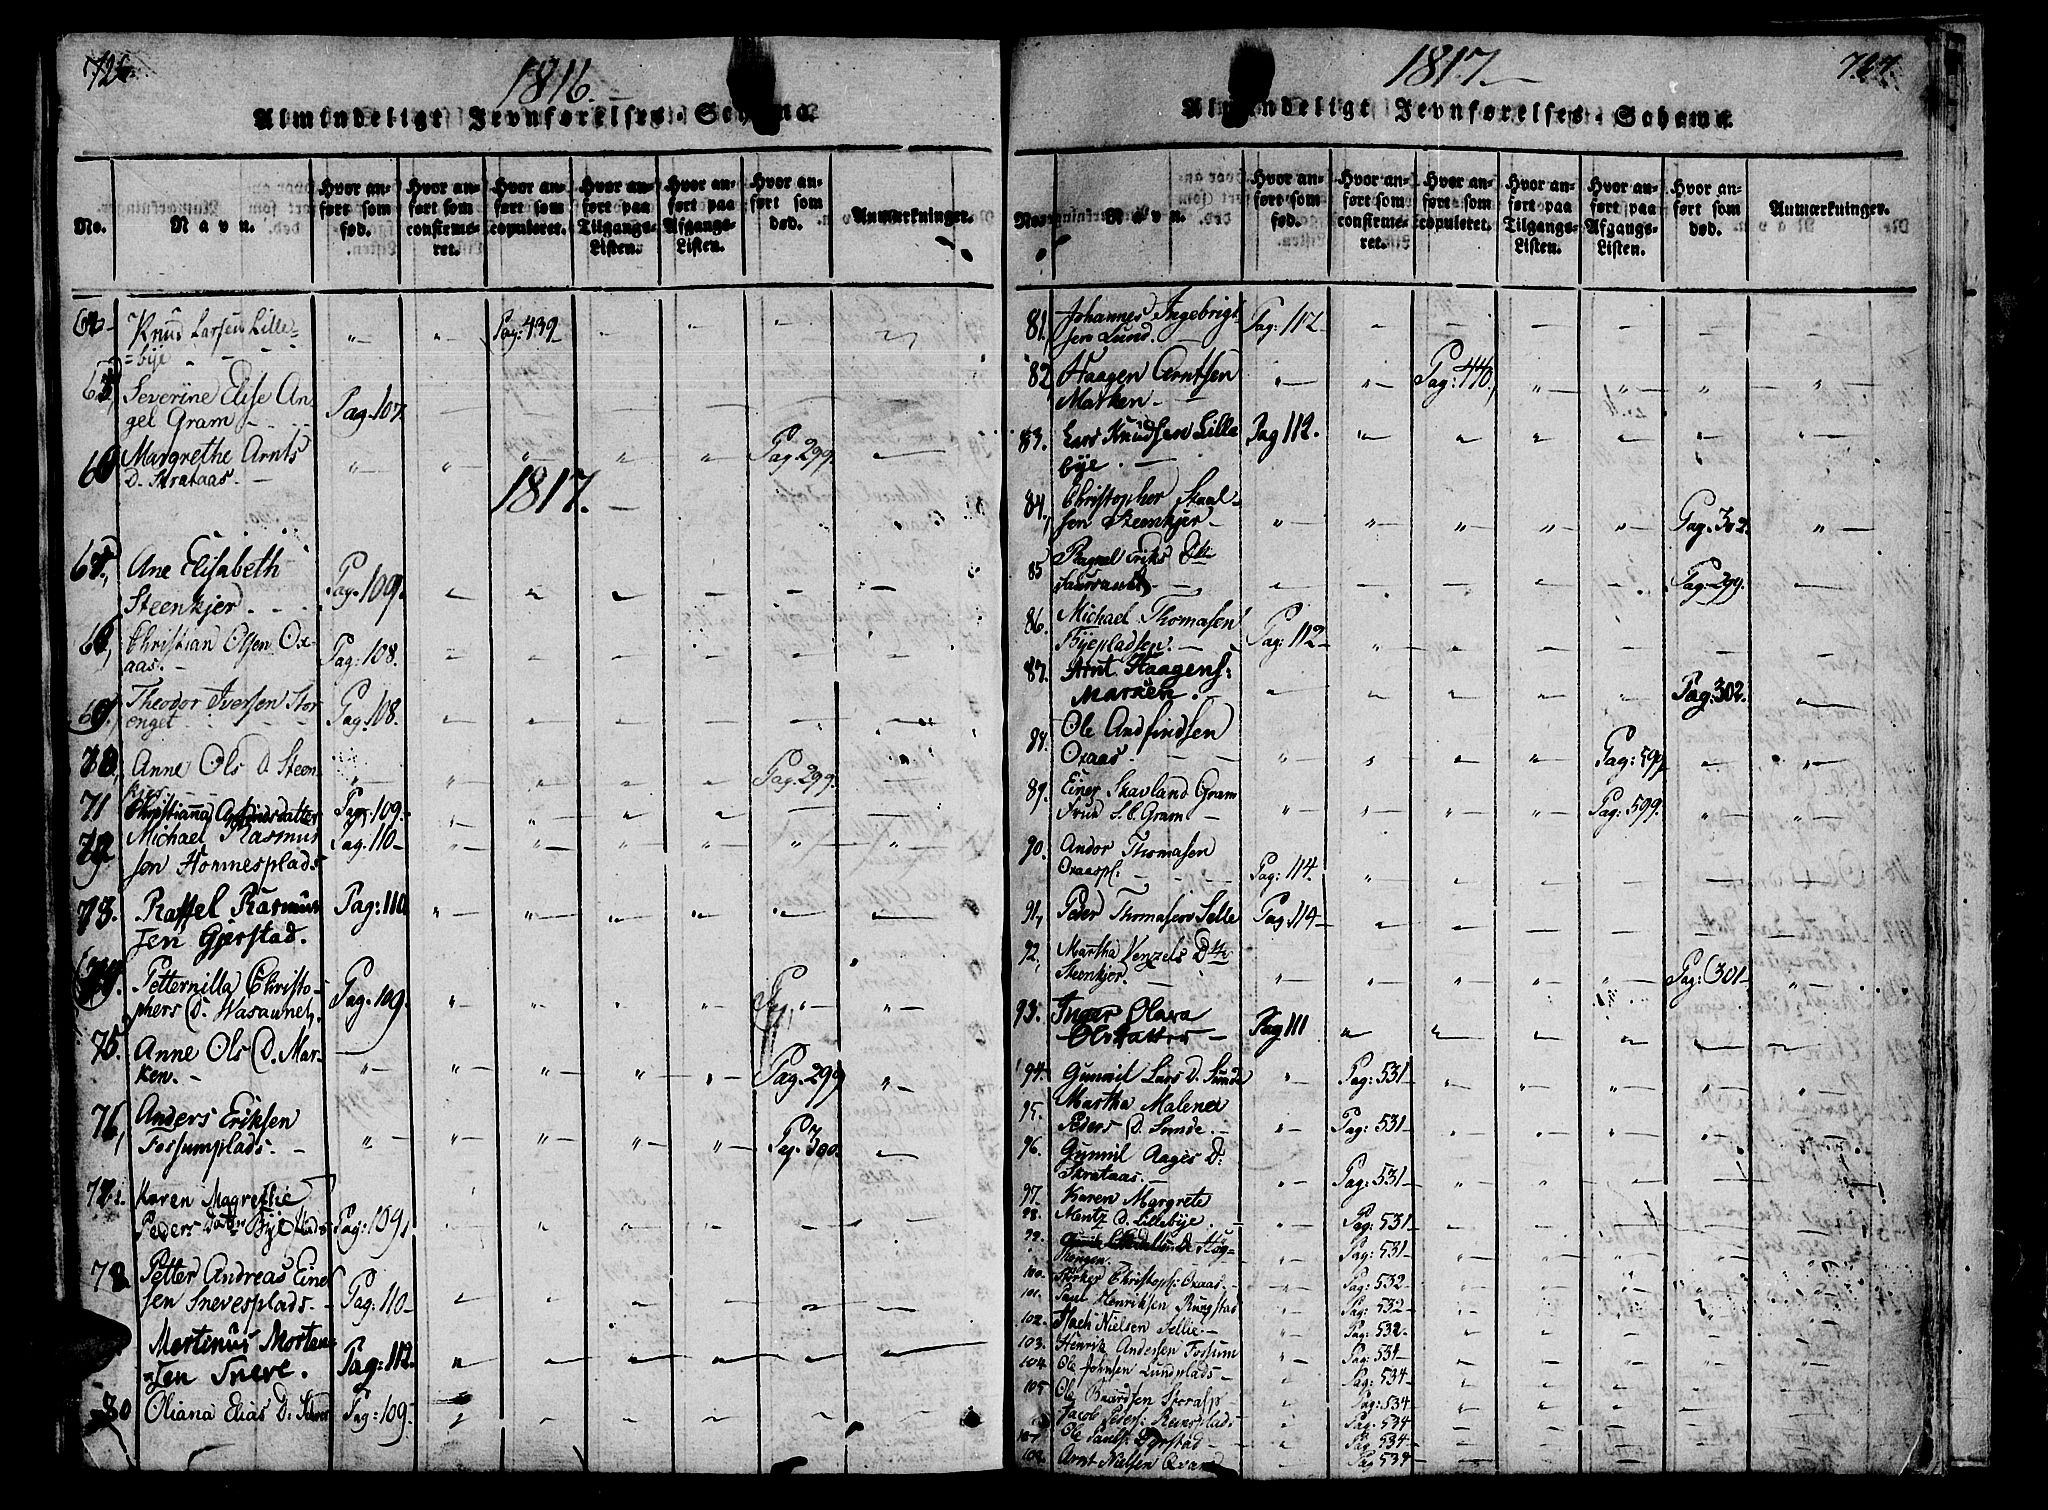 726
1816.
Almindeligt Jevnførelses-Schema.
No.
Navn.
Hvor anført som fød.
Hvor anført som confirmeret.
Hvor anført som copuleret.
Hvor anført paa Tilgangs-Listen.
Hvor anført paa Afgangs-Listen.
Hvor anført som død.
Anmærkninger.
Knud Larsen Lille= Pag: 439
=bye
Severine Elise An
gel Gram Pag. 107.
Margrethe Arnts Pag. 299.
D. Skrataas.
1817.
Ane Elisabeth
Steenkjer Pag. 109.
Christian Olsen Ox-
aas. Pag: 108.
Theodor Iversen Stor
enget Pag. 108.
Anne Ols D. Steen
kier Pag. 299.
71 Christianna Datter Pag. 109.
Michael Rasmus
sen Hommesplads Pag. 110
73. Raffel Rasmus
sen Gjerstad. Pag: 110
Petternilla Christo-
phers D. Pag. 109.
75. Anne Ols D. Mar-
ken. Pag. 299
76, Anders Eriksen
Fossumplads. Pag. 300.
Karen Magrethe
Peders Datter Bye Pag: 109,
78 Petter Andreas Einer
sen Snevesplads. Pag: 110
Martinus Morten
sen Sneve. Pag: 112.
80 Oliana Elias D: Pag: 109.
1817.
727.
Almindeligt Jevnførelses-Schema.
Navn.
Hvor anført som fød.
Hvor anført som confirmeret.
Hvor anført som copuleret.
Hvor anført paa Tilgangs-Listen.
Hvor anført paa Afgangs-Listen.
Hvor anført som død.
Anmærkninger.
81, Johannes Ingebrigt
sen Lund. Pag: 112
82, Haagen Arntsen
Marken Pag: 440,
83. Lars Knudsen Lille
bye. Pag 112.
84, Christopher Skaal
sen Steenkjer Pag. 302.
85 Eriks Dtr
Pag. 299.
86. Michael Thomasen
Byepladsen. Pag: 112
87. Arnt Haagens:
Marken. Pag: 302.
88. Ole Andfindsen
Oxaas Pag: 599
89. Einer Skavland Gram
S. C. Gram Pag: 599.
90. Andor Thomasen
Oxaaspl: Pag: 114.
91, Peder Thomasen Selle Pag. 114
92, Martha Venzels Dtr
Steenkjer. Pag: 301
93. Inger Olava
Olsdatter Pag 111
94 Gunnil Lars D. Sunde Pag: 531
95. Martha Malena
Peders D. Sunde. Pag: 531
96. Gunnil Aages D:
Skrataas. Pag: 531
97. Karen Margrete
98. Mentz D. Lillebye. Pag: 531
99. Pag: 531
100. Christoph: Oxaas Pag: 532
101. Paul Henriksen Rungstad Pag: 532
102. Nielsen Sellie Pag: 532.
103. Henrik Andersen Fossum Pag: 534
104. Ole Johnsen Lundplads Pag: 534.
105 Ole Baardsen Pag: 534
Jacob Peders: Reinsplads Pag: 534
107 Ole Pauls: Pag. 534
108. Arnt Nielsen Qvam Pag 534